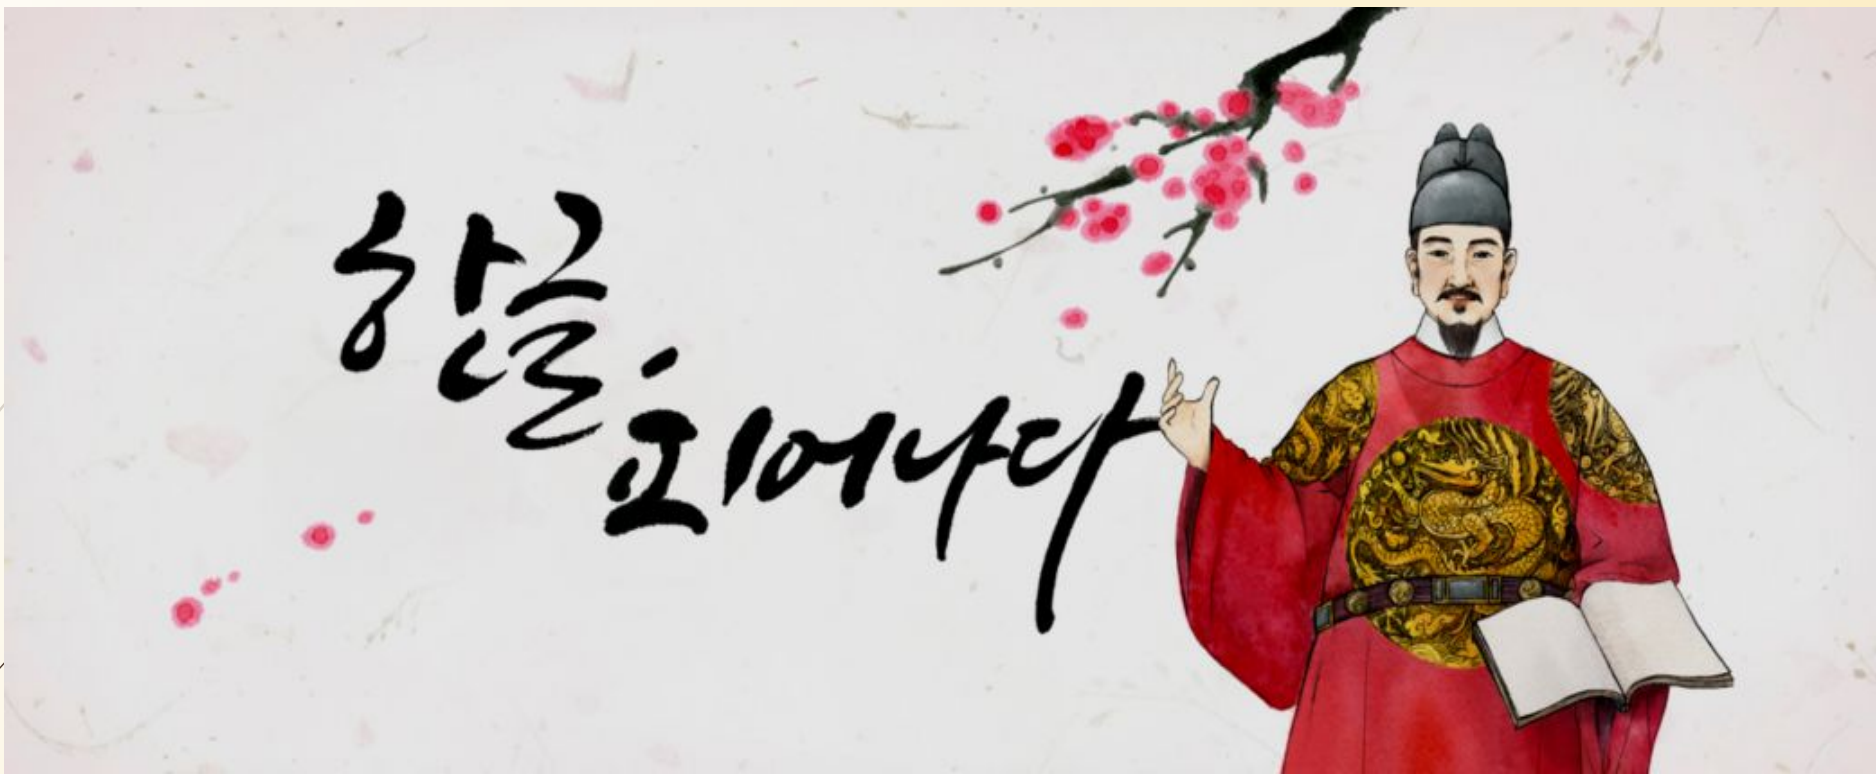 한글
피어나다